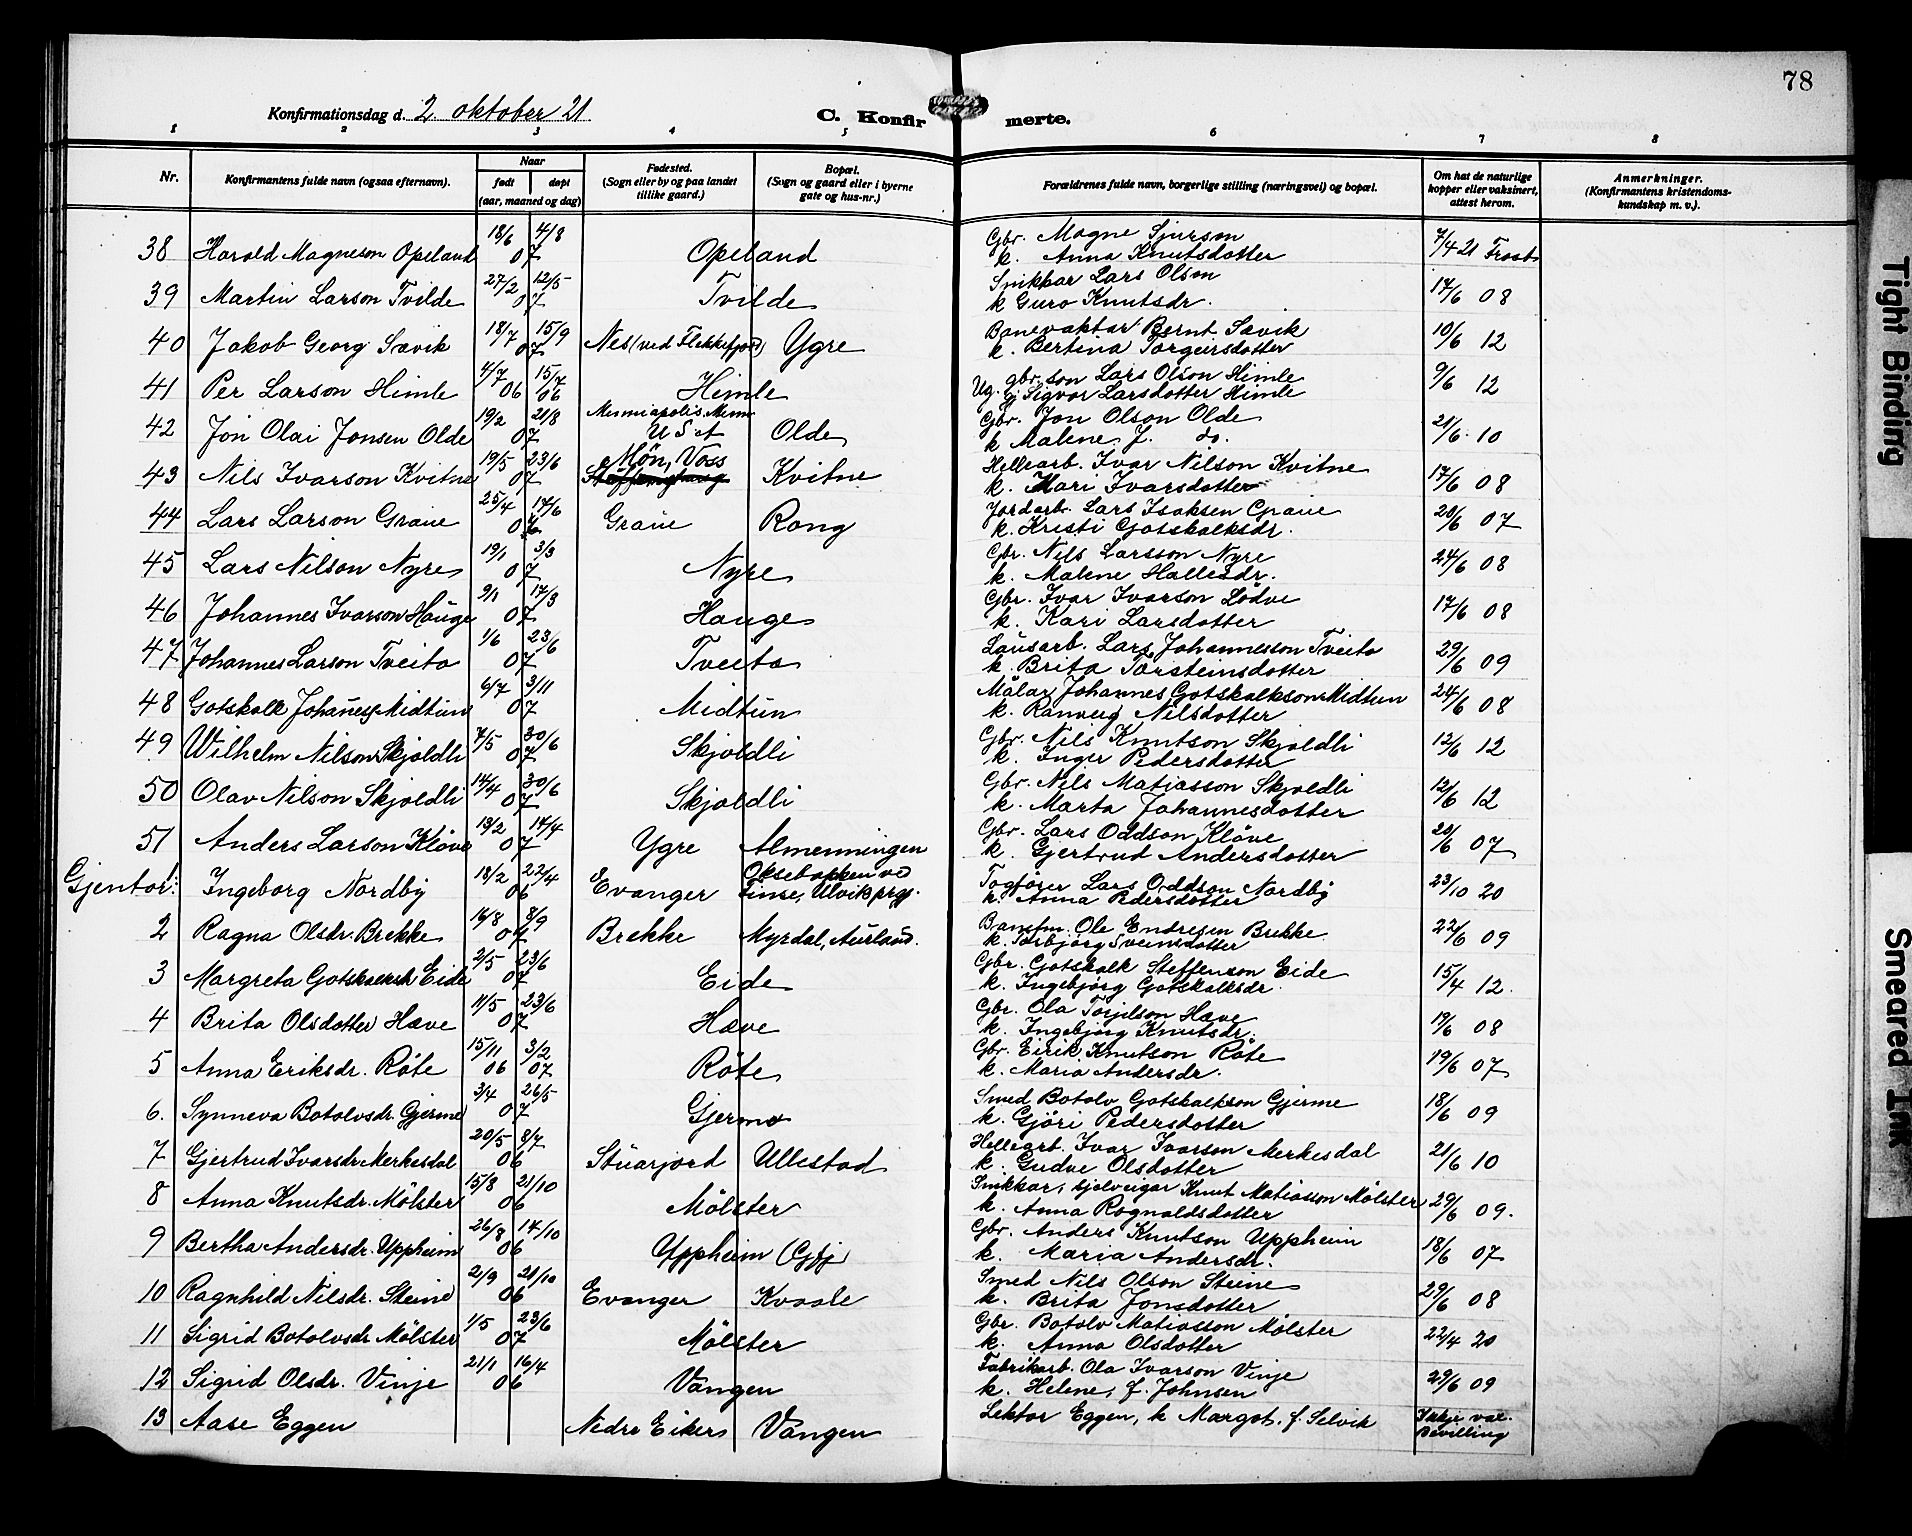 78
Konfirmationsdag d. 2 oktober 21.
C. Konfirmerte.
1 2 3 4 5 6 7 8
Nr.
Konfirmantens fulde navn (ogsaa efternavn).
Naar
født døpt
(aar, maaned og dag)
Fødested.
(Sogn eller by og paa landet
tillike gaard.)
Bopæl.
(Sogn og gaard eller i byerne
gate og hus-nr.)
Forældrenes fulde navn, borgerlige stilling (næringsvei) og bopæl.
Om hat de naturlige
kopper eller vaksinert,
attest herom.
Anmerkninger.
(Konfirmantens kristendoms-
kundskap m. v.).
38 Harald Magneson Opeland 18/6 4/8 07 Opeland Gbr. Magne Sjurson
k. Anna Knutsdotter 7/4 21
39 Martin Larson Tvilde 27/2 12/5 07 Tvilde Snikkar Lars Olson
k Guro Knutsdr. 17/6 08
40 Jakob Georg Sævik 18/7 15/9 07 Nes (ved Flekkefjord) Ygre Banevaktar Bernt Sævik
k. Bertina Torgeirsdotter 10/6 12
41 Per Larson Himle 4/7 06 15/7 06 Himle Ug. gbr. son Lars Olson Himle
gj. Sigvor Larsdotter Himle 9/6 12
42 Jon Olai Jonsen Olde 19/2 21/8 07 Minniapolis. Minn
U S A Olde Gbr. Jon Olson Olde
k Malene J. do. 21/6. 10
43 Nils Ivarson Kvitne 19/5 23/6 07 Møn, Voss Kvitne Hellearb. Ivar Nilson Kvitne
k. Mari Ivarsdotter 17/6 08
44 Lars Larson Graue 25/4 17/6 07 Graue Rong Jordarb. Lars Isaksen Graue
k. Kristi Gotskalksdr. 20/6 07
45 Lars Nilson Nyre 19/1 3/3 07 Nyre Gbr. Nils Larsson Nyre
k. Malene Hallesdr. 24/6 08
46 Johannes Ivarson Hauge 9/1 17/3 07 Hauge Gbr. Ivar Ivarson Lödve
k. Kari Larsdotter 17/6 08
47 Johannes Larson Tveito 1/6 23/6 07 Tveito Lausarb. Lars Johannesson Tveito
k. Brita Torsteinsdotter 29/6 09
48 Gotskalk Johanes Midtun 6/7 3/11 07 Midtun Målar Johannes Gotskalkson Midtun
k. Ranveig Nilsdotter 24/6 08
49 Wilhelm Nilson Skjoldli 7/5 30/6 07 Skjoldli Gbr. Nils Knutson Skjoldli
k. Inger Pedersdotter 12/6 12
50 Olav Nilson Skjoldli 14/4 30/6 07 Skjoldli Gbr. Nils Matiasson Skjoldli
k. Marta Johannesdotter 12/6 12
51 Anders Larson Kløve 13/2 14/4 07 Ygre Almenningen Gbr. Lars Oddson Kløve
k. Gjertrud Andersdotter 20/6 07
Gjentor:
1 Ingeborg Nordby 18/2 22/4 06 Evanger Oksebakken ved
Finse, Ulvik prgj. Togfører Lars Oddson Nordby
k. Anna Pedersdotter 23/10 20
2 Ragna Olsdr. Brekke 16/8 8/9 07 Brekke Myrdal, Aurland. Banefm. Ole Endresen Brekke
k. Torbjörg Sveinsdotter 22/6 09
3 Margreta Gotskalksdr Eide 2/5 23/6 07 Eide Gbr. Gotskalk Steffenson Eide
k. Ingebjörg Gotskalksdr. 15/4 12.
4 Brita Olsdotter Hæve 11/5 23/6 07 Hæve Gbr. Ola Torjilson Hæve
k. Ingebjörg Knutsdr. 19/6 08
5 Anna Eriksdr. Röte 15/11 06 3/2 07 Röte Gbr. Eirik Knutson Röte
k. Maria Andersdr. 19/6 07
6. Synneva Botolvsdr. Gjerme 3/4 26/5 07 Gjerme Smed Botolv Gotskalkson Gjerme
k. Gjöri Pedersdotter 18/6 09
7 Gjertrud Ivarsdr Merkesdal 20/5 8/7 06 Stuarjord Ullestad Hellearb. Ivar Ivarson Merkesdal
k. Gudve Olsdotter 21/6 10
8 Anna Knutsdr. Mölster 15/8 21/10 06 Mölster Snikkar, sjolveigar Knut Matiasson Mölster
k. Anna Rognaldsdotter 29/6 09.
9 Bertha Andersdr. Uppheim 26/8 14/10 06 Uppheim Gbr. Anders Knutson Uppheim
k. Maria Andersdr. 18/6 07
10 Ragnhild Nilsdr. Steine 2/9 21/10 06 Evanger Kvaale Smed Nils Olson Steine
k. Brita Jonsdotter 29/6 08
11 Sigrid Botolvsdr Mölster 1/5 23/6 07 Mölster Gbr. Botolv Matiasson Mölster
k. Anna Olsdotter 22/4 20
12 Sigrid Olsdr. Vinje 21/1 16/4 06 Vangen Fabrikarb. Ola Ivarson Vinje
k. Helene, f. Johnsen 29/6 09
13 Aase Eggen Nedre Eiker Vangen Lektor Eggen, k Margot. f. Selvik Ikkje vak.
Bevilling
Tight Binding
Smeared Ink